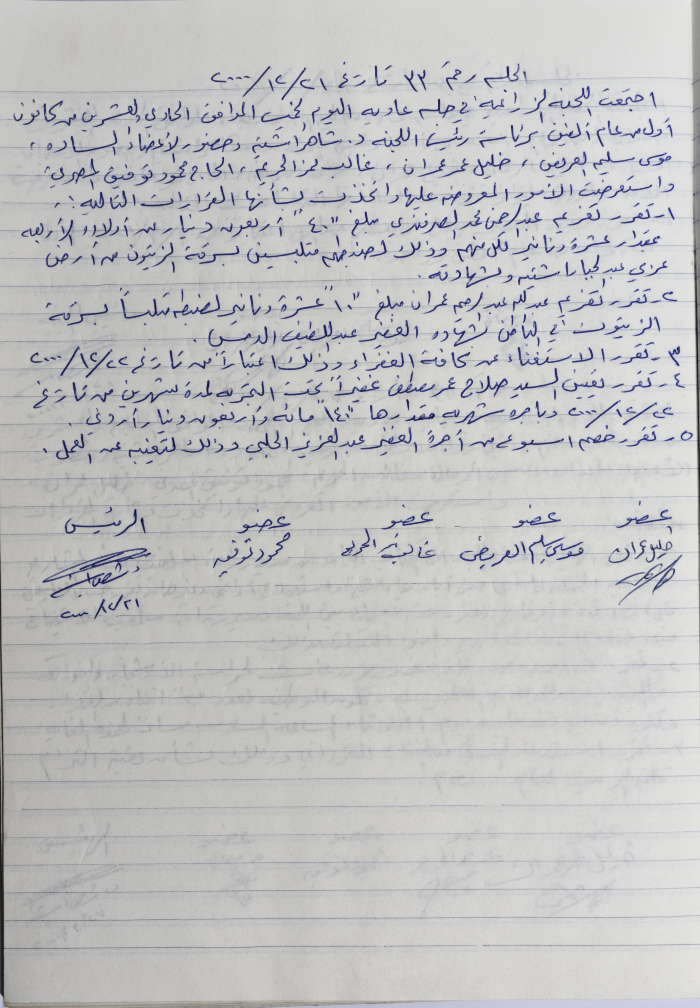 الجلسة رقم ٣٣ تاريخ ٢٠٠٠/١٢/٢١
اجتمعت اللجنة الزراعية في جلسة عادية اليوم الخميس الموافق الحادي والعشرين من كانون
أول من عام ألفين برئاسة رئيس اللجنة د. شاهر اشتية وحضور الأعضاء السادة ،
موسى سليم العريض ، خليل عمر عمران ، غالب نمر الحج ، الحاج محمود توفيق المصري .
واستعرضت الأمور المعروضة عليها واتخذت بشأنها القرارات التالية :
١- تقرر تغريم عبد الرحمن محمد مبلغ "٤٠" أربعون دينار من أولاده الأربعه
بمقدار عشرة دنانير لكل منهم وذلك لضبطهم متلبسين بسرقة الزيتون من أرض
عزمي عبد الجبار اشتيه وبشهادته .
٢- تقرر تغريم عبد الله عبد الرحيم عمران مبلغ "١٠" عشرة دنانير لضبطه متلبساً بسرقة
الزيتون في الباطن بشهادة الغفير عبد اللطيف .
٣- تقرر الاستغناء عن كافة الغفراء وذلك اعتباراً من تاريخ ٢٠٠٠/١٢/٢٢
٤- تقرر تعيين السيد صلاح عمر مصطفى غفيراً تحت التجربه لمدة شهرين من تاريخ
٢٠٠٠/١٢/٢٢ وباجره شهريه مقدارها "١٤٠" مائه وأربعون دينار أردني .
٥- تقرر خصم اسبوع من أجرة الغفير عبد العزيز الحلبي وذلك لتغيبه عن العمل .
عضو عضو عضو عضو الرئيس
خليل عمران موسى سليم العريض غالب محمود توفيق
٢٠٠٠/١٢/٢١